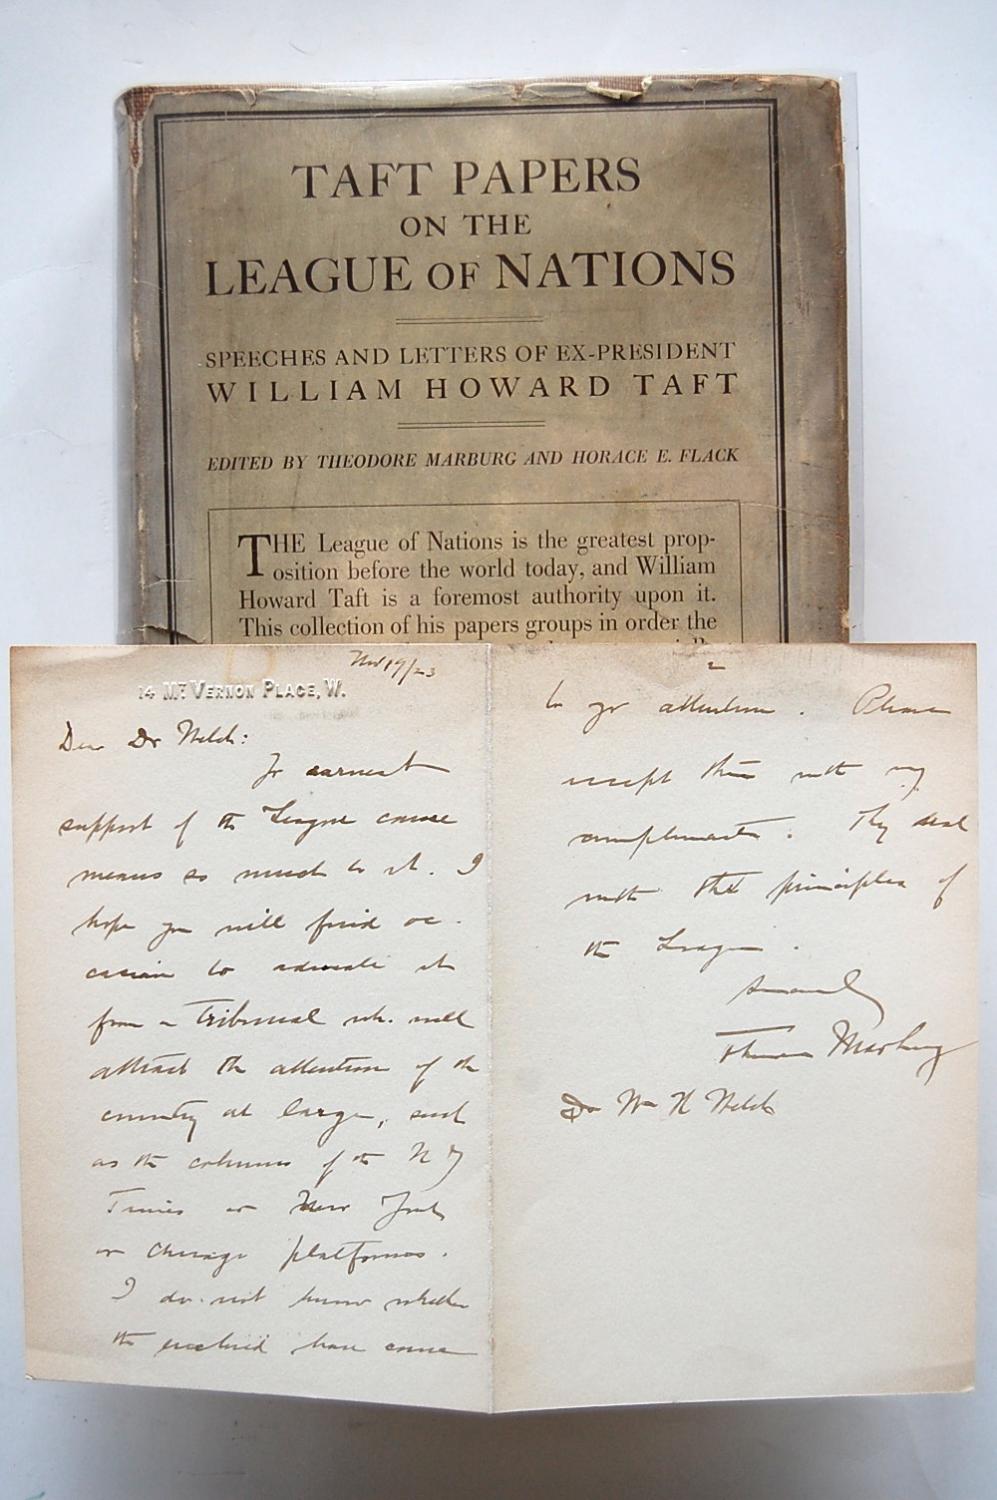 TAFT PAPERS
ON THE
LEAGUE OF NATIONS
SPEECHES AND LETTERS OF EX-PRESIDENT
WILLIAM HOWARD TAFT
EDITED BY THEODORE MARBURG AND HORACE E. FLACK
THE League of Nations is the greatest prop-
osition before the world today, and William
Howard Taft is a foremost authority upon it.
This collection of his papers groups in order the
14 MT. VERNON PLACE, W.
Nov 19/23
Dear Dr Welch:
Yr earnest
support of the League cause
means so much to it. I
hope you will find oc-
casion to advocate it
from a Tribunal wh. will
attract the attention of the
country at large, such
as the columns of the N Y
Times or New York
or Chicago platforms.
I do not know whether
the enclosed have come
2
to yr attention. Please
accept them with my
compliments. They deal
with the principles of
the League.
Sincerely
Theodore Marburg
Dr Wm H Welch